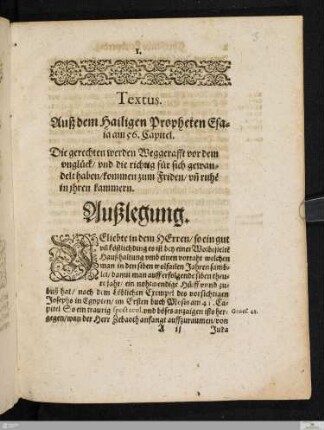 1.
Textus.
Auß dem Hailigen Propheten Esa-
ia am 56. Capitel.
Die gerechten werden Weggerafft vor dem
vnglück / vnd die richtig für sich gewan-
delt haben / kommen zum Friden / vñ ruhẽ
in jhren kammern.
Außlegung.
GEliebte in dem HErren / so ein gut
vñ köstlich ding es ist bey einer
Haußhaltung vmb einen vorraht welchen
man in den siben Jahren samb-
let / damit man auff erfolgende siben theu-
re Jahr / ein nohtwendige Hülff vnnd zu-
buß hat / nach dem löblichen Exempel des vorsichtigen
Josephs in Egypten / im Ersten buch Moses am 41. Ca-
pitel So ein traurig spectacul vnd böses anzaigen ists her-
gegen / wan der Herr Zebaoth anfangt auffzuraumen / von
A ij Juda